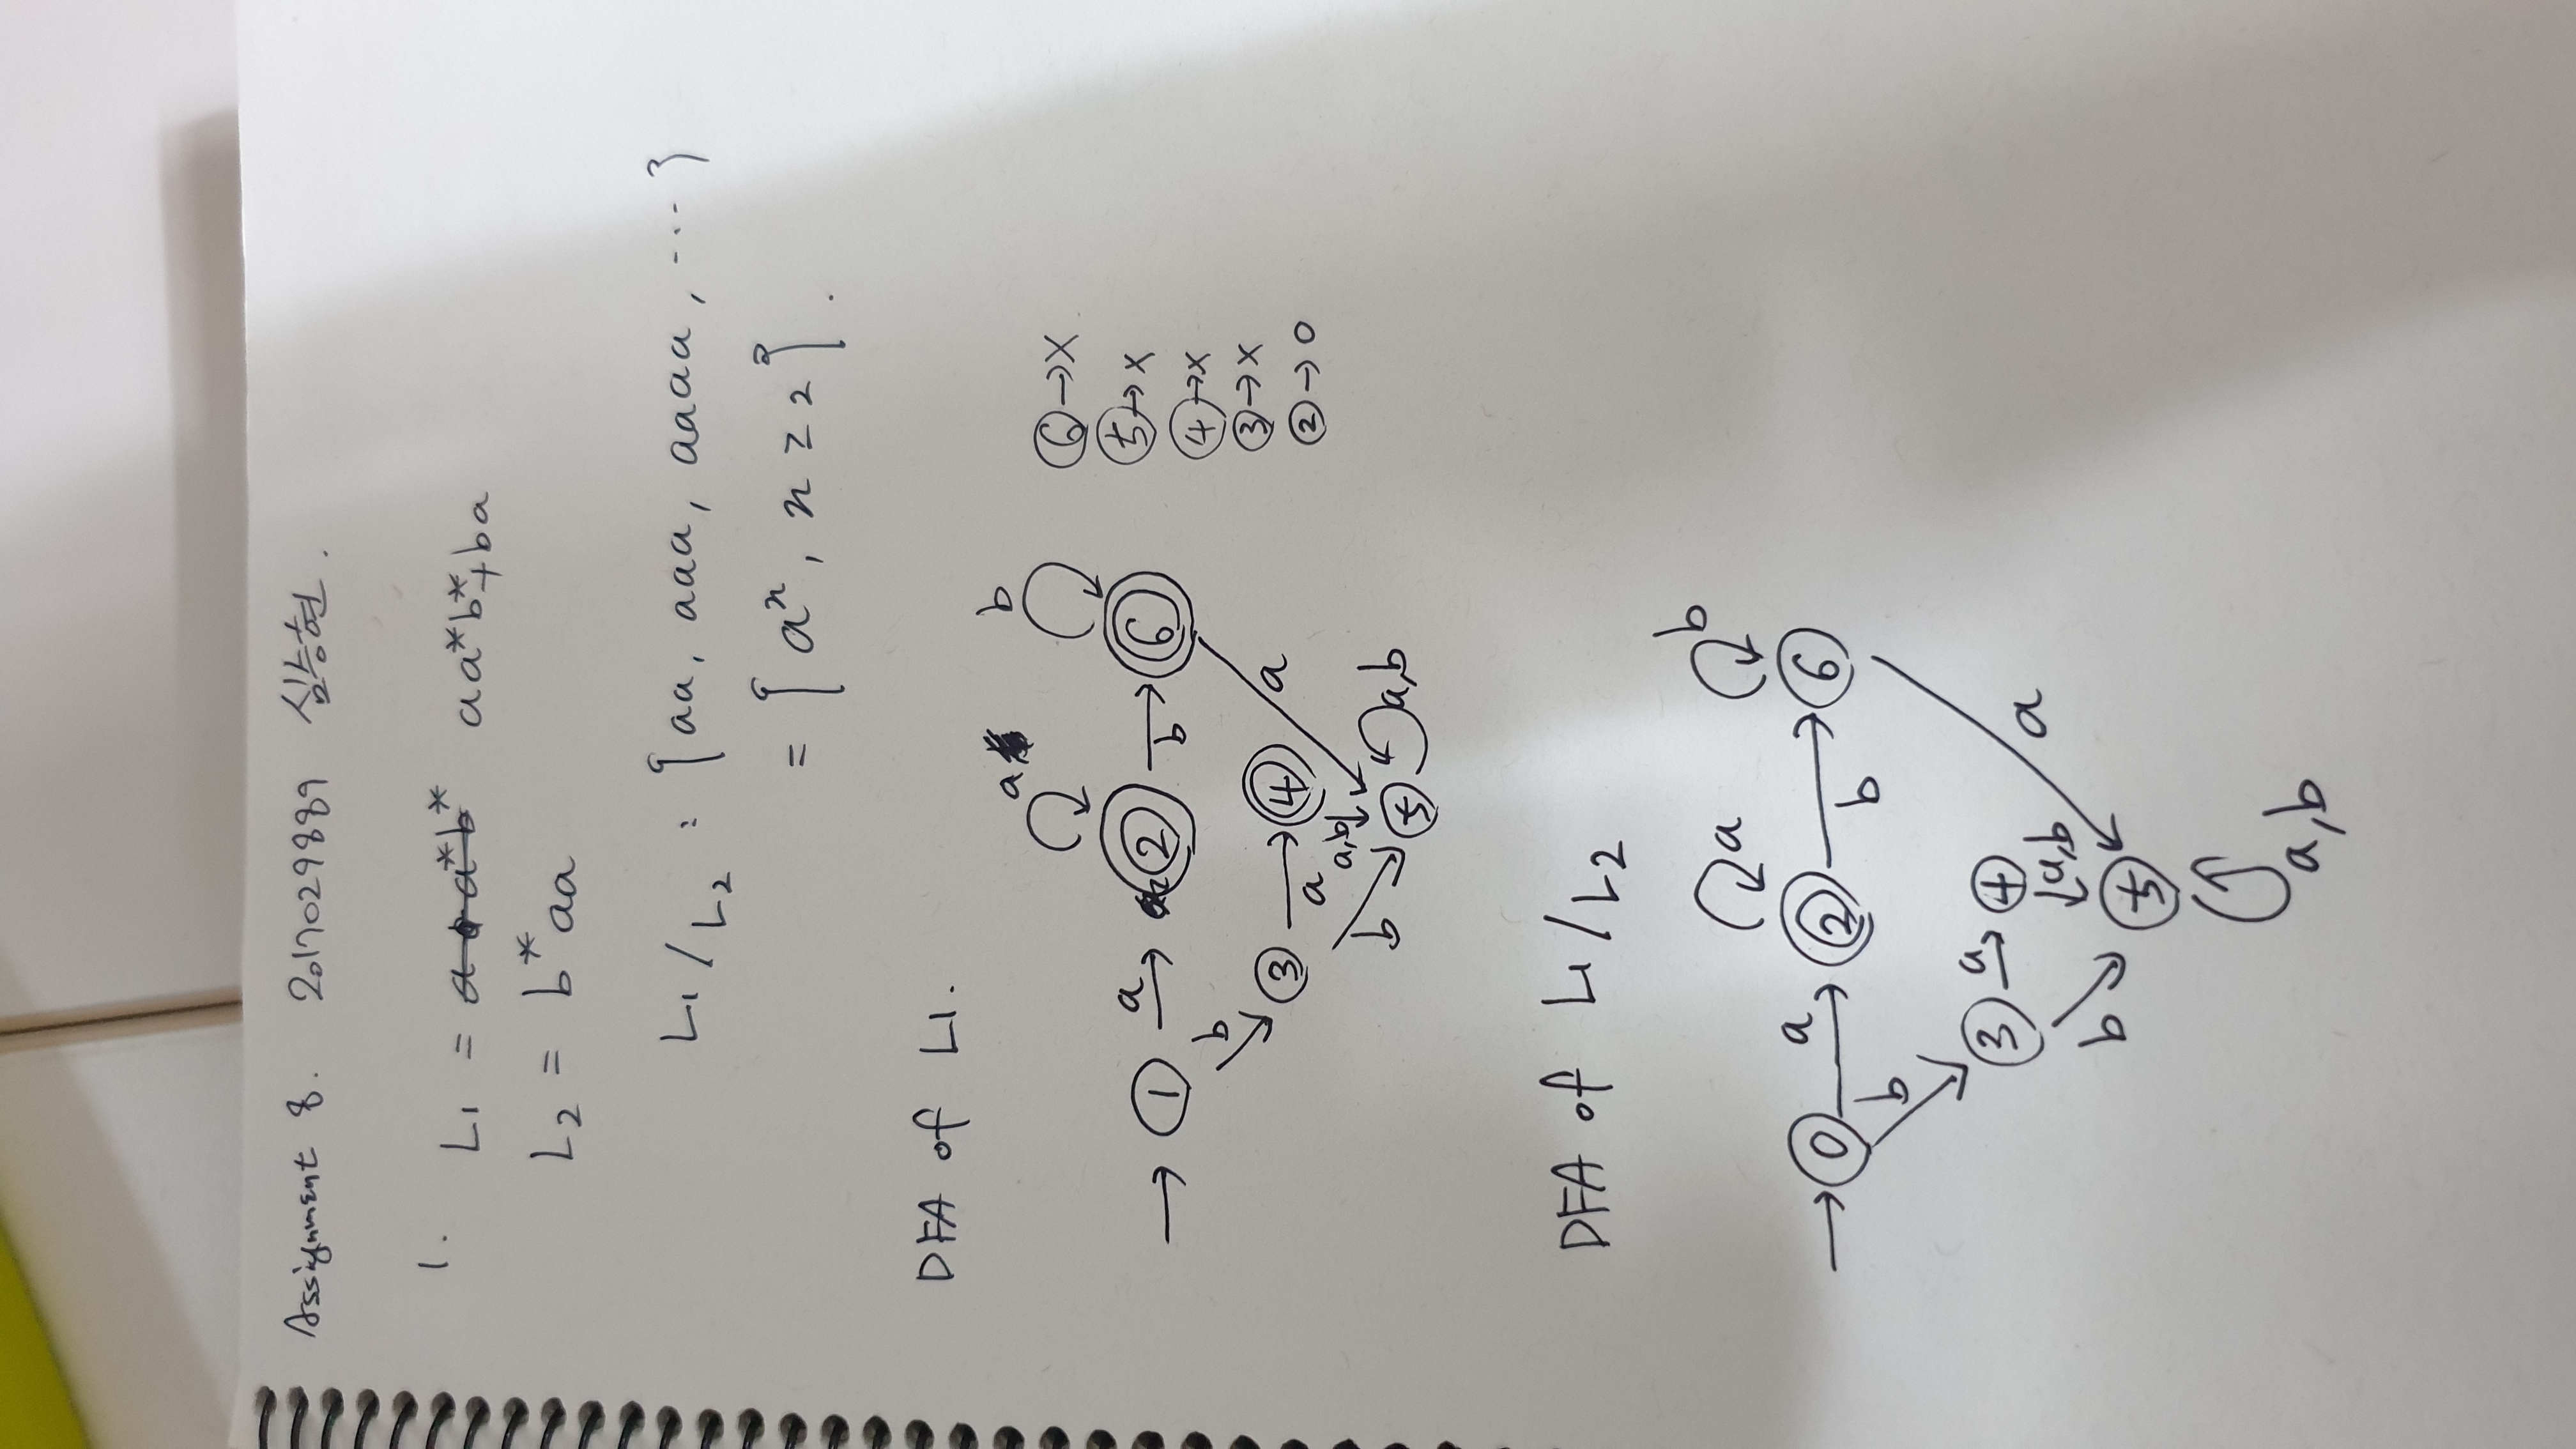 Assignment 8. 2017029889 심승현.
1.
L1 = a a*b* aa*b*+ba
L2 = b*aa
L1/L2 : {aa, aaa, aaaa, ... }
= { aⁿ, n ≥ 2 }.
DFA of L1.
a b
1 a 2 b 6
b
3 a 4 a
a,b
b 5 a,b
6 → X
5 → X
4 → X
3 → X
2 → O
DFA of L1/L2
a b
0 a 2 b 6
b
3 a 4
a,b a
b 5
a,b